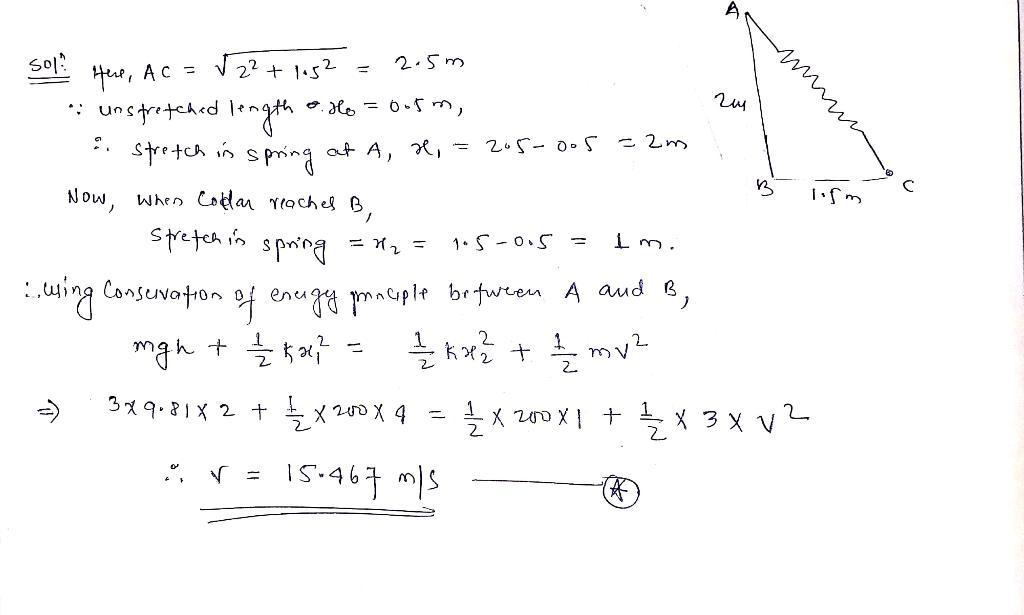 Sol<sup>n</sup>: Here, AC = √2² + 1.5² = 2.5 m
∵ unstretched length x₀ = 0.5 m,
∴ stretch in spring at A, x₁ = 2.5 - 0.5 = 2m
Now, when Collar reaches B,
stretch in spring = x₂ = 1.5 - 0.5 = 1 m.
∴ using Conservation of energy principle between A and B,
mgh + 1/2 kx₁² = 1/2 kx₂² + 1/2 mv²
⇒ 3 x 9.81 x 2 + 1/2 x 200 x 4 = 1/2 x 200 x 1 + 1/2 x 3 x v²
∴ v = 15.467 m/s
A
2m
B
1.5m
C